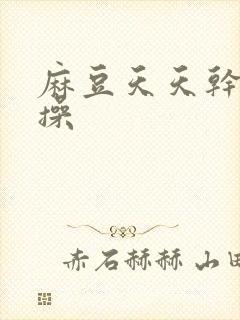 麻豆天天幹
操
赤石赫赫 山田